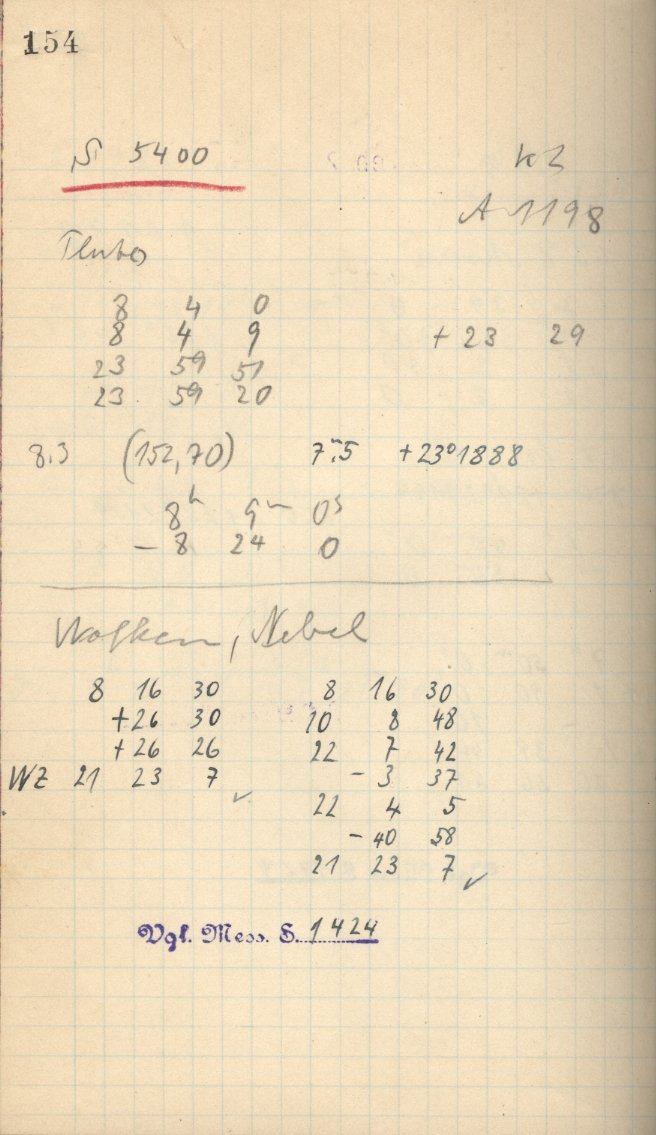 154
S 5400
A 1198
Pluto
8 4 0
8 4 9 + 23 29
23 59 51
23 59 20
8.3 (152,70) 7ᵐ.5 +23°1888
8ʰ 9ᵐ 0ˢ
– 8 24 0
Wolken, Nebel
8 16 30 8 16 30
+26 30 10 8 48
+26 26 22 7 42
WZ 21 23 7 ✓ – 3 37
22 4 5
– 40 58
21 23 7 ✓
Vgl. Mess. S. 1424